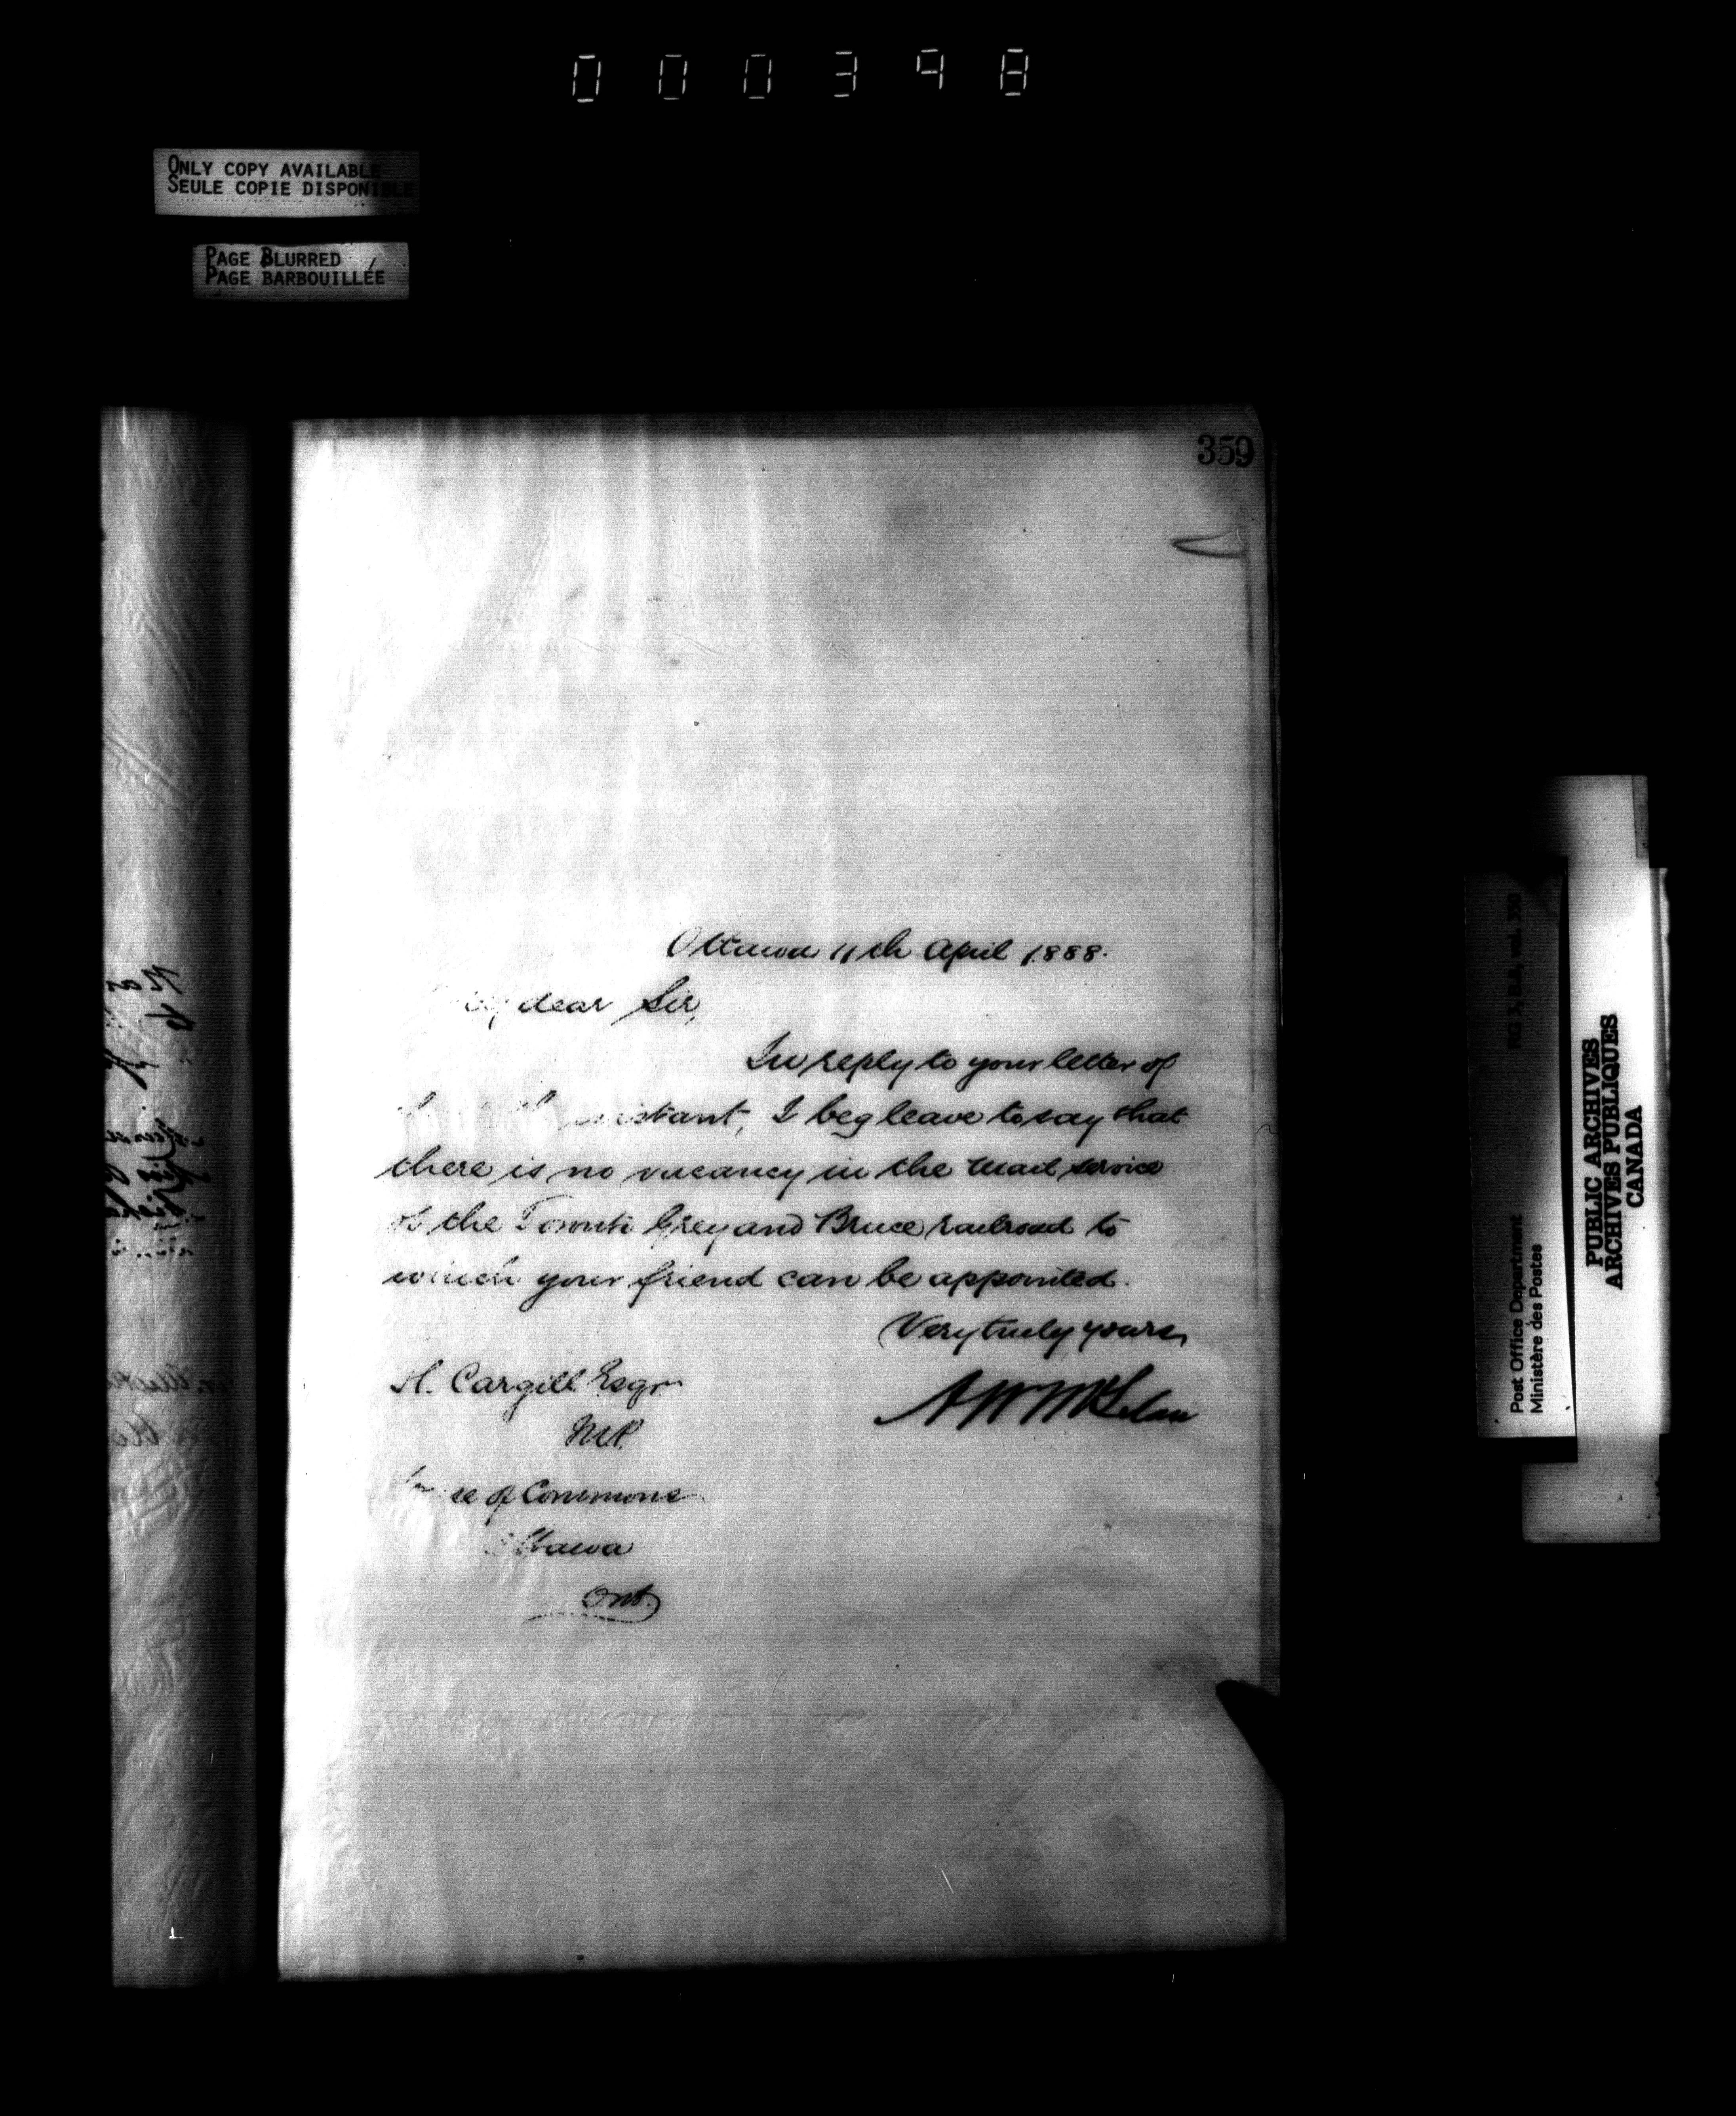 000398
ONLY COPY AVAILABLE
SEULE COPIE DISPONIBLE
PAGE BLURRED
PAGE BARBOUILLÉE
359
Ottawa 11th April 1888.
My dear Sir,
In reply to your letter of
instant, I beg leave to say that
there is no vacancy in the Mail service
of the Toronto Grey and Bruce railroad to
which your friend can be appointed.
Very truly yours
A W McLelan
H. Cargill Esqr
M.P.
House of Commons
Ottawa
Ont.
RG 3, D.2, vol. 350
Post Office Department
Ministère des Postes
PUBLIC ARCHIVES
ARCHIVES PUBLIQUES
CANADA